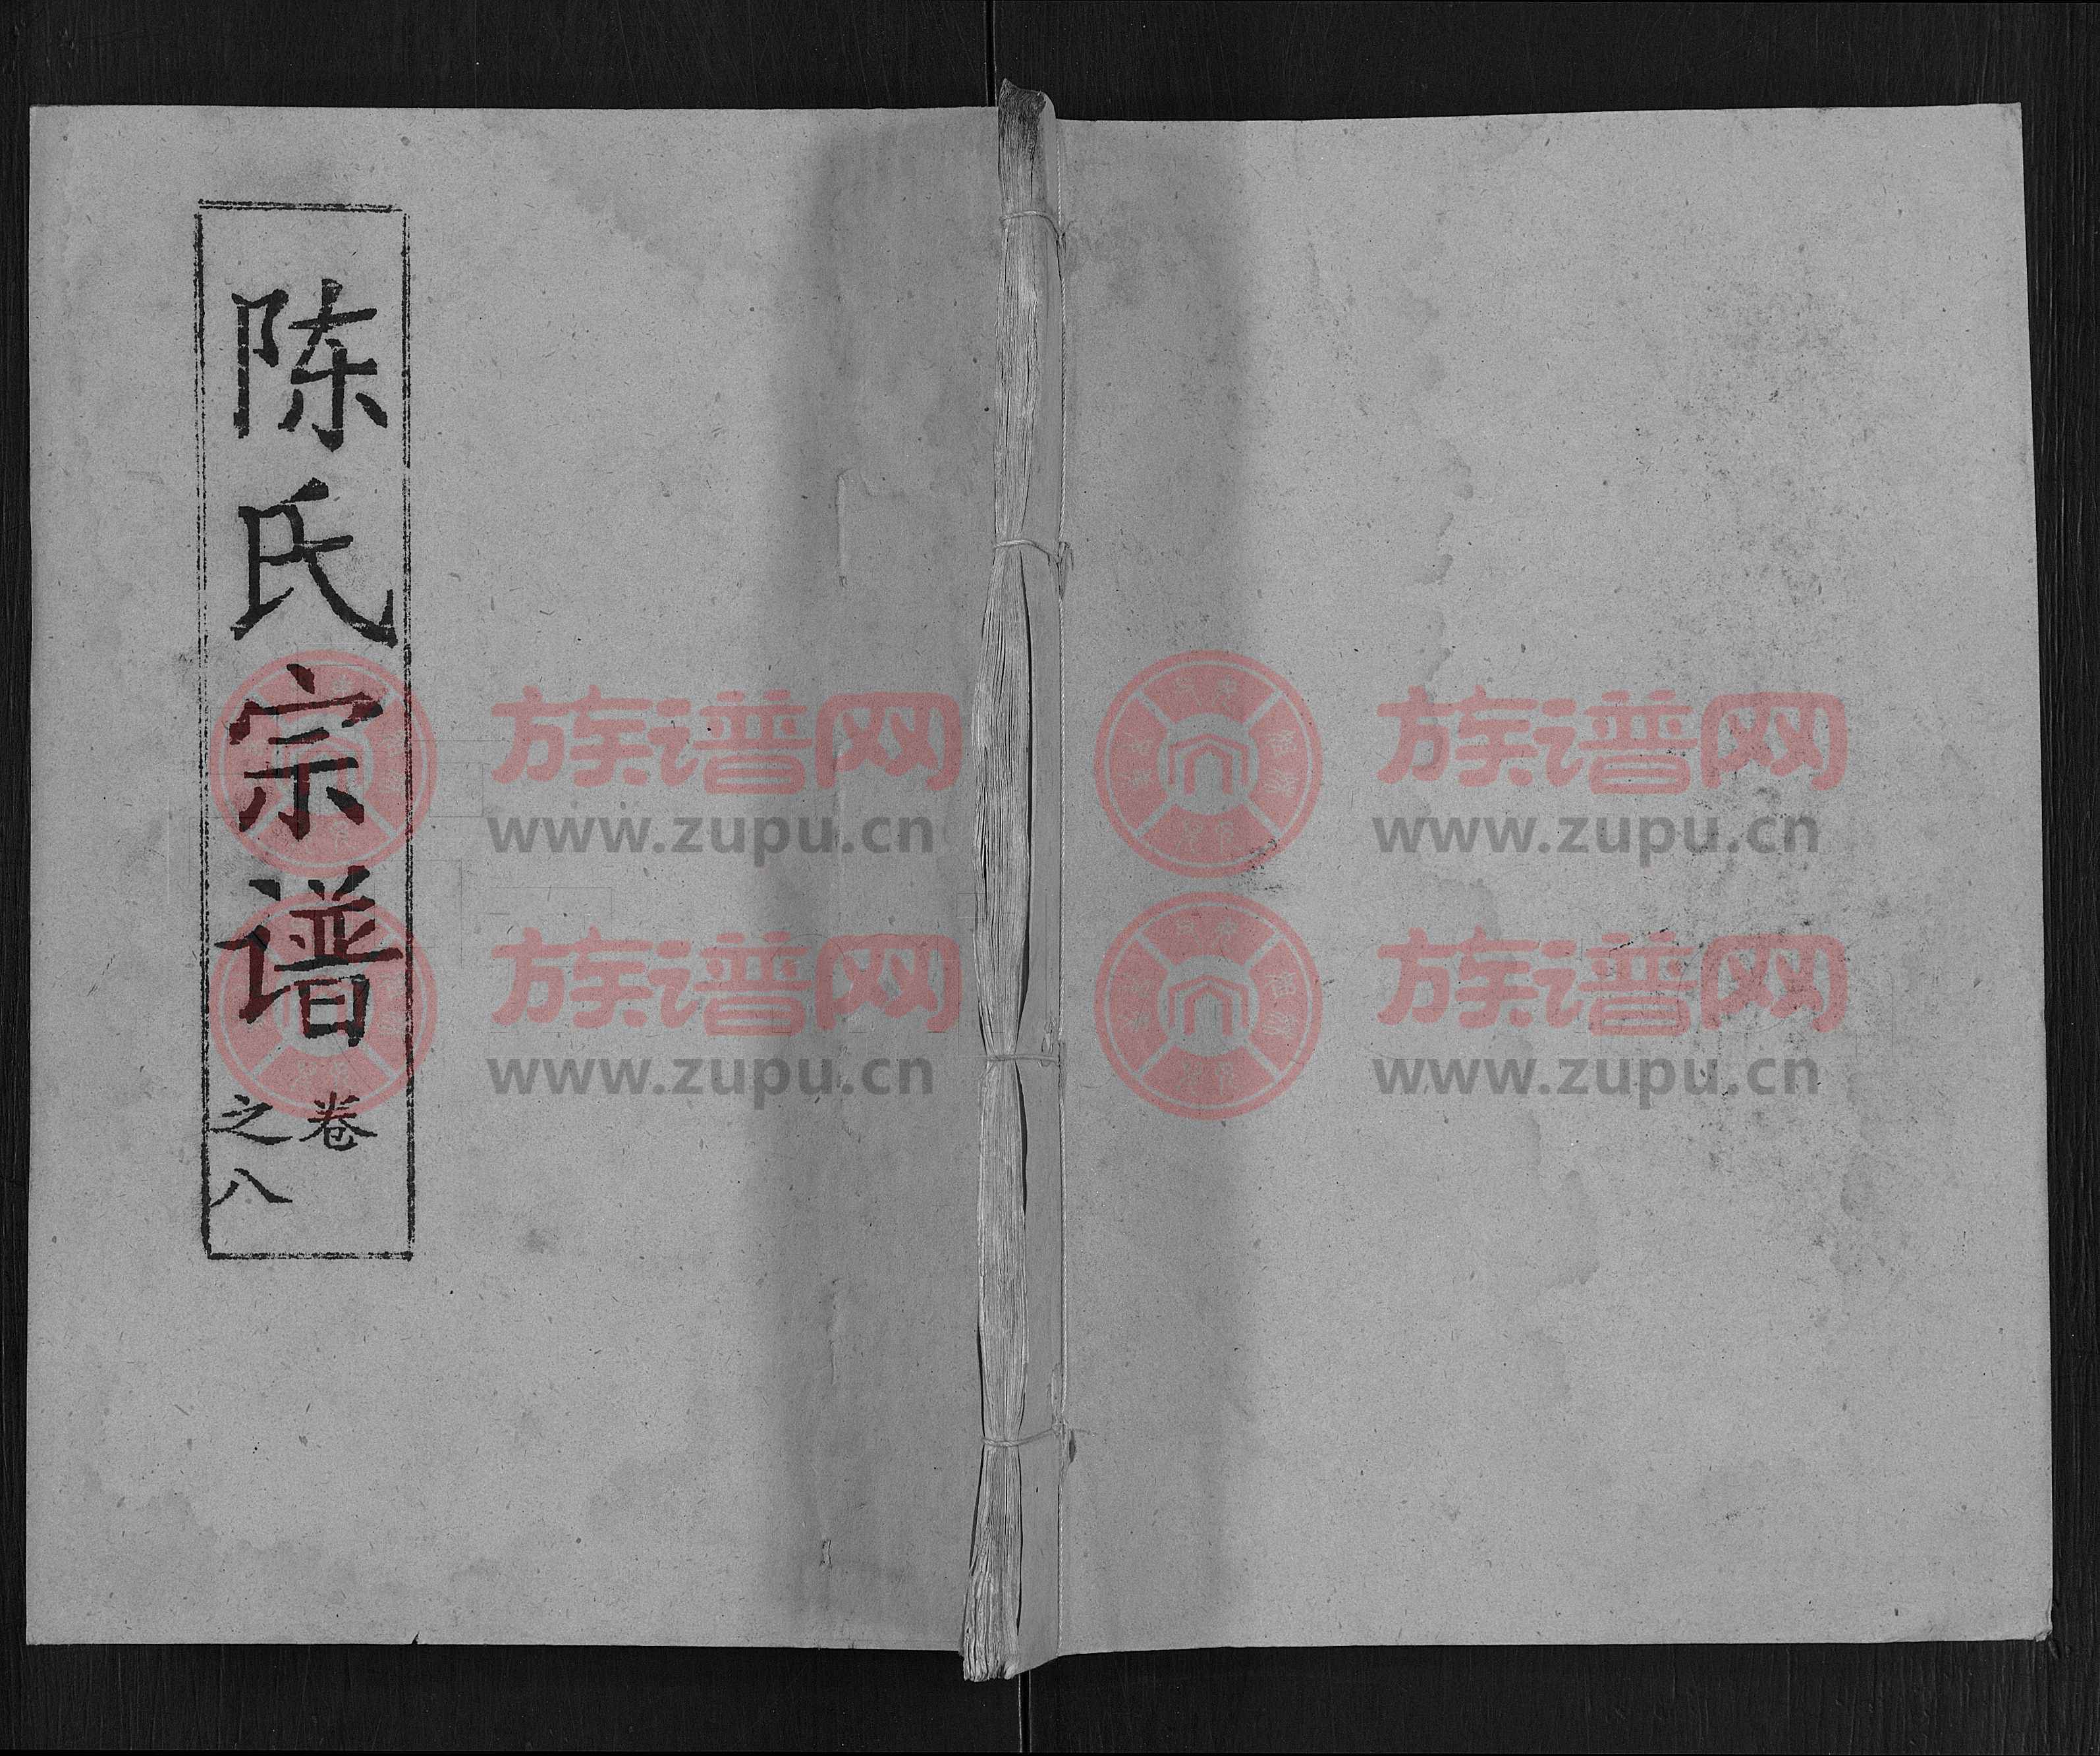 陈氏宗谱
卷
之八
族谱网
www.zupu.cn
族谱网
www.zupu.cn
族谱网
www.zupu.cn
族谱网
www.zupu.cn